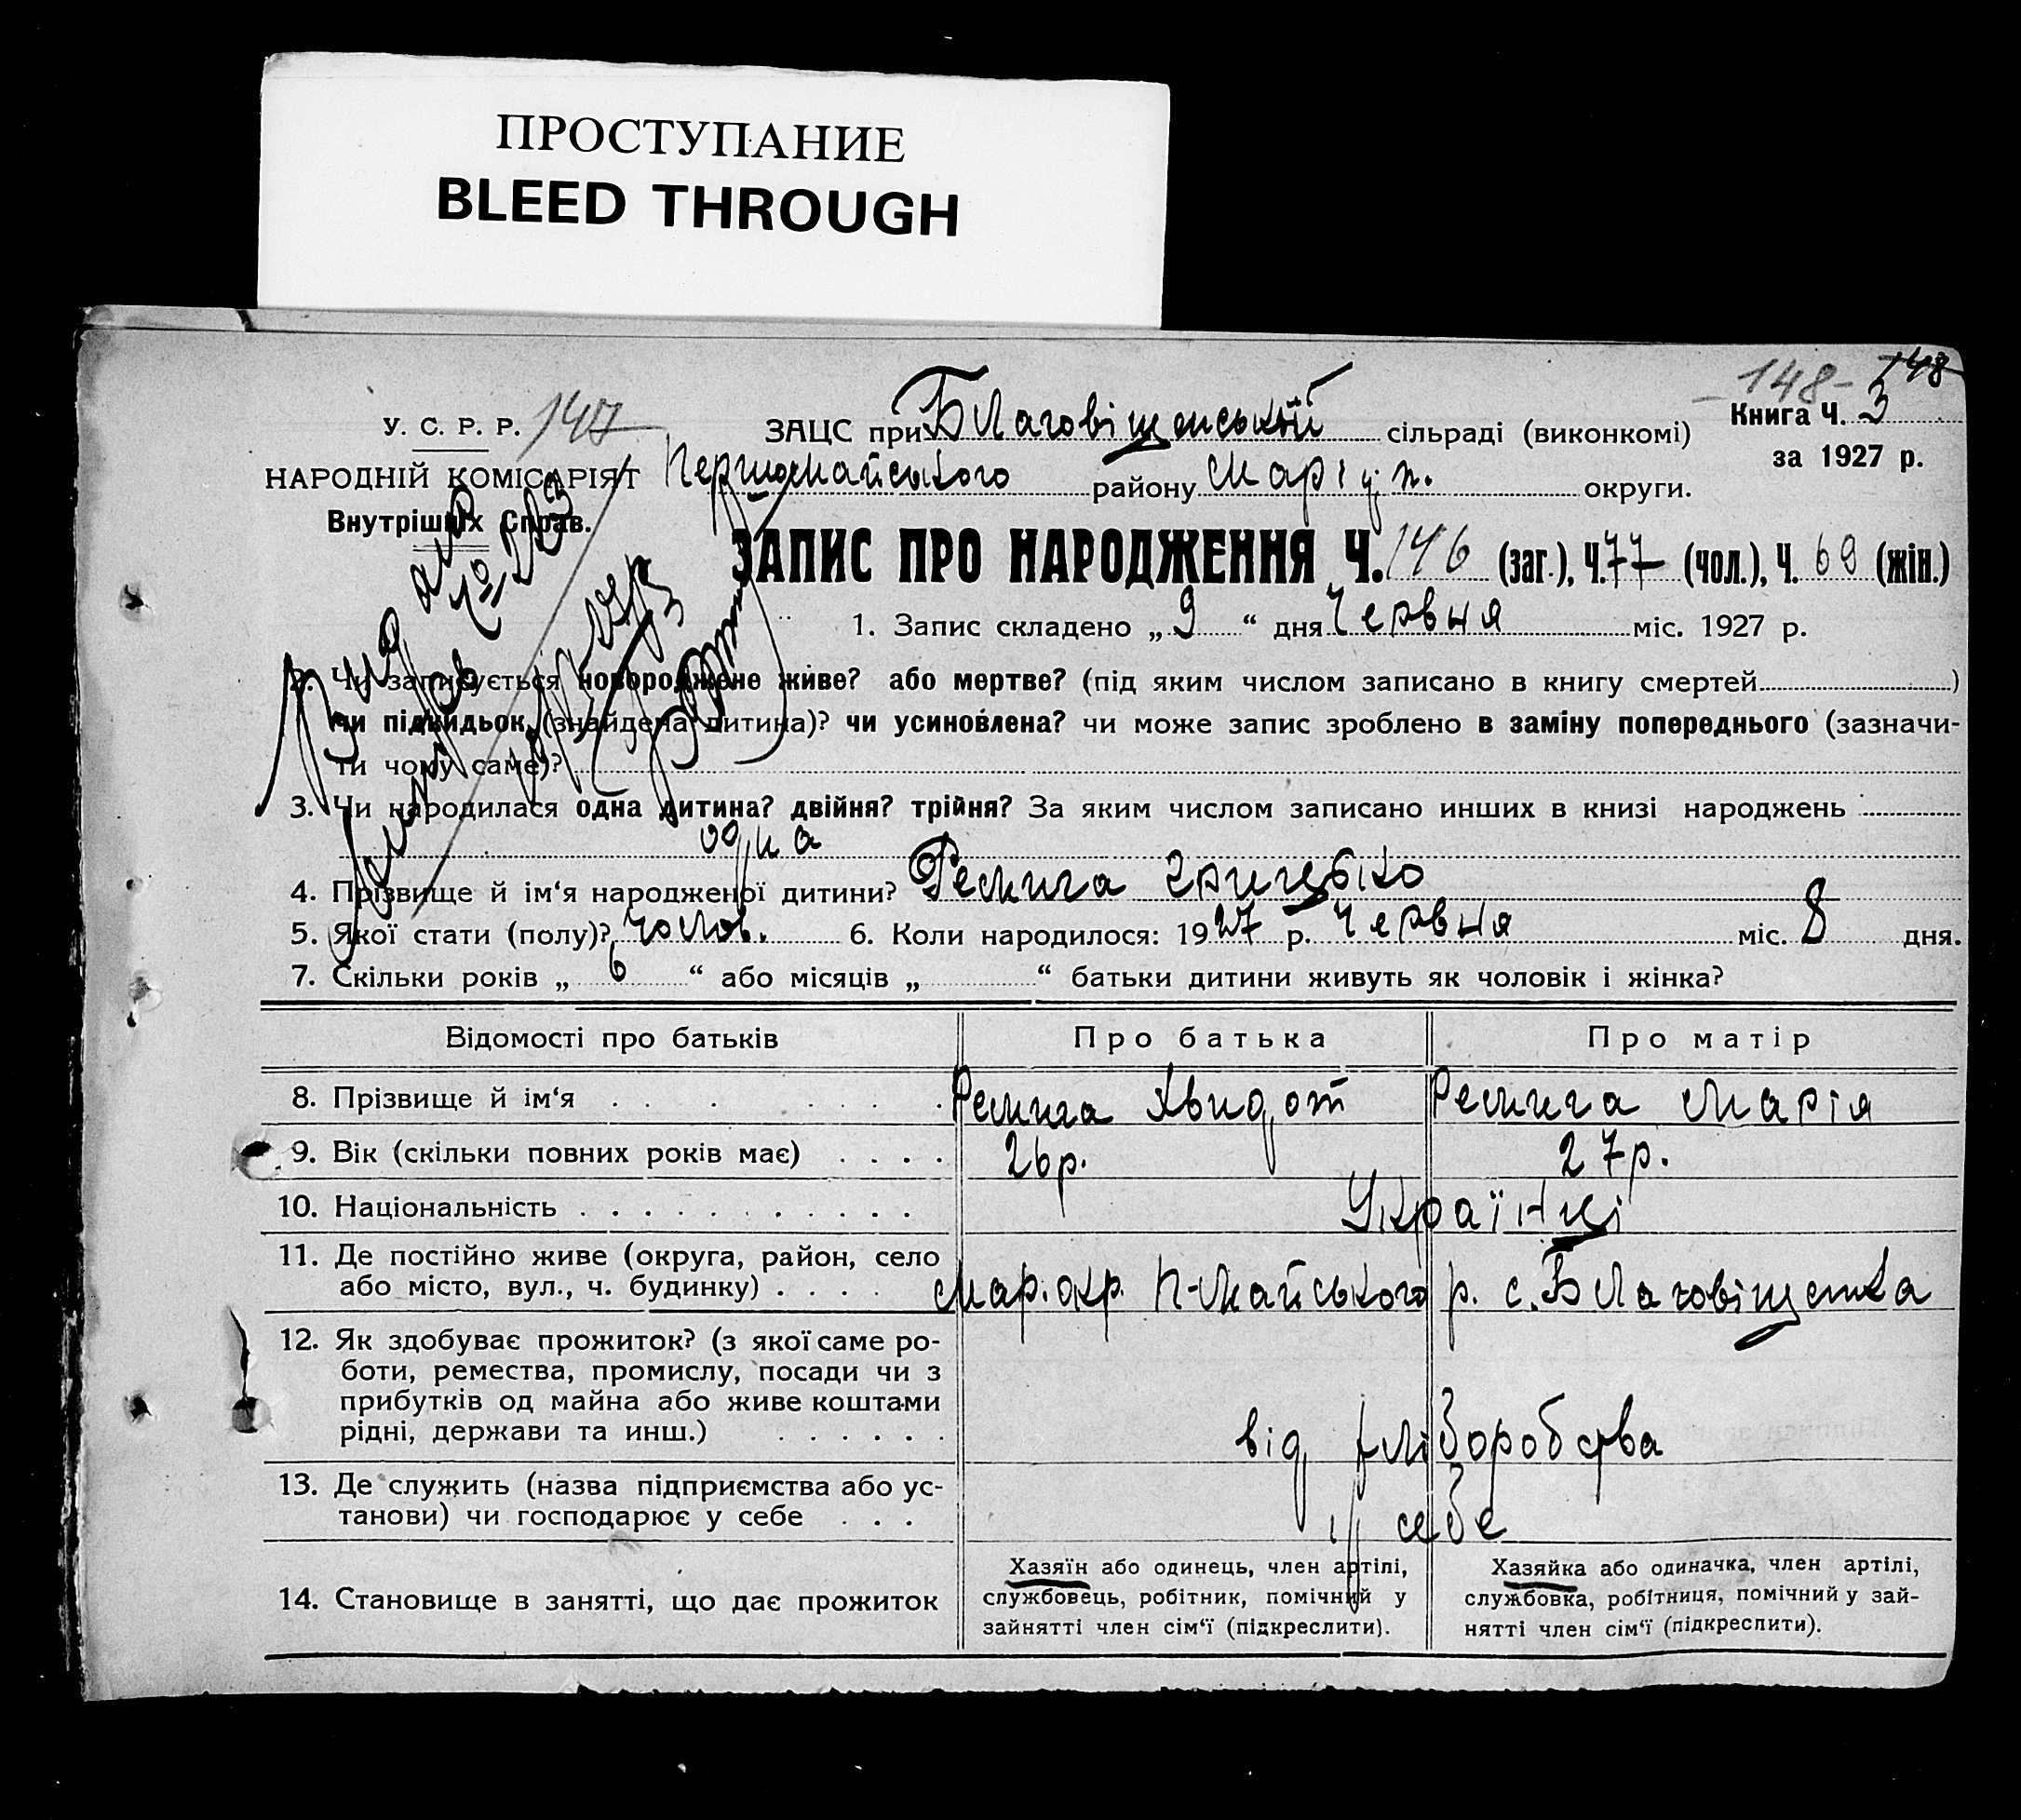 ПРОСТУПАНИЕ
BLEED THROUGH
148- 148
У. С. Р. Р. 147
ЗАЦС при Благовіщенській сільраді (виконкомі) Книга Ч. 3
за 1927 р.
НАРОДНІЙ КОМІСАРІЯТ Першомайського району Маріуп. округи.
Внутрішніх Справ.
ЗАПИС ПРО НАРОДЖЕННЯ Ч. 146 (заг.), Ч. 77 (чол.), Ч. 69 (жін.)
1. Запис складено „ 9 “ дня Червня міс. 1927 р.
2. Чи записується новороджене живе? або мертве? (під яким числом записано в книгу смертей )
чи підкидьок (знайдена дитина)? чи усиновлена? чи може запис зроблено в заміну попереднього (зазначи-
ти чому саме)?
3. Чи народилася одна дитина? двійня? трійня? За яким числом записано инших в книзі народжень
одна
4. Прізвище й ім‘я народженої дитини? Ремига Грицько
5. Якої стати (полу)? чолов. 6. Коли народилося: 1927 р. Червня міс. 8 дня.
7. Скільки років „ 6 “ або місяців „ “ батьки дитини живуть як чоловік і жінка?
Відомості про батьків Про батька Про матір
8. Прізвище й ім‘я Ремига Хвидот Ремига Марія
9. Вік (скільки повних років має) 26р. 27р.
10. Національність Українці
11. Де постійно живе (округа, район, село
або місто, вул., ч. будинку) Мар. окр. П-Майського р. с. Благовіщенка
12. Як здобуває прожиток? (з якої саме ро-
боти, ремества, промислу, посади чи з
прибутків од майна або живе коштами
рідні, держави та инш.) від хліборобства
13. Де служить (назва підприємства або ус-
танови) чи господарює у себе у себе
14. Становище в занятті, що дає прожиток
Хазяїн або одинець, член артілі,
службовець, робітник, помічний у
зайнятті член сім‘ї (підкреслити).
Хазяйка або одиначка, член артілі,
службовка, робітниця, помічний у зай-
нятті член сім‘ї (підкреслити).